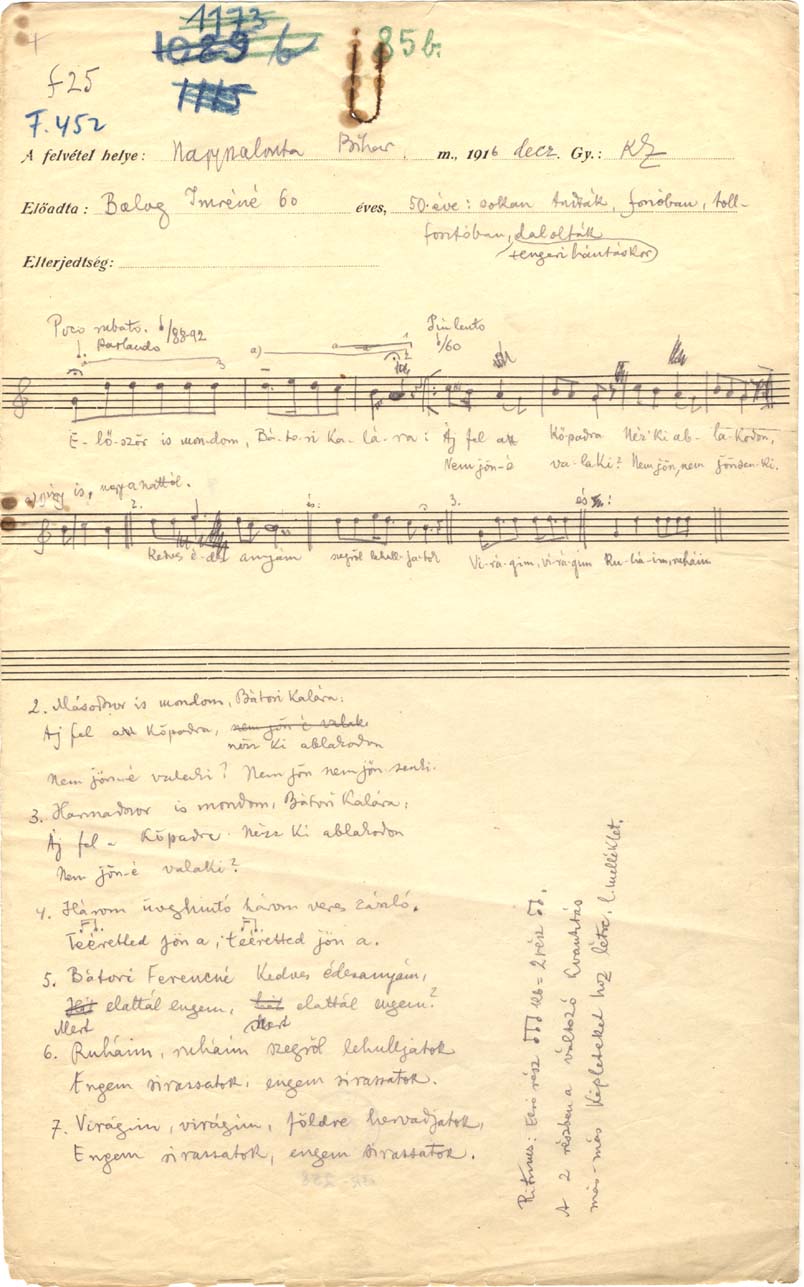 1173
1089 b
85b.
1115
f25
F.452
A felvétel helye: Nagyszalonta Bihar m., 1916 decz. Gy.: KZ
Előadta: Balog Imréné 60 éves, 50 éve: sokan tudták, fonóban, toll-
fosztóban, dalolták
+tengeri hántáskor
Elterjedtség:
Poco rubato. /88-92
Parlando
a)
Più lento
/60
E-lő-ször is mon-dom, Bá-to-ri Ka-lá-ra: Áj fel a Kőpadra Néz' Ki ab-la-kodon,
Nem jön-é va-la-ki? Nem jön, nem jön sen-ki.
a) így is, ugyanattól.
2.
és:
3.
és:
Kedves é-des anyám szegről lehull-ja-tok Vi-rá-gim, vi-rá-gim Ru-há-im, ruháim
2. Másodszor is mondom, Bátori Kalára:
Áj fel a Kőpadra, nem jön é valak
nézz ki ablakodon
Nem jön-é valaki? Nem jön nem jön senki.
3. Harmadszor is mondom, Bátori Kalára:
Áj fel a Kőpadra Nézz Ki ablakodon
Nem jön-é valaki?
4. Három üveghintó három veres zászló.
Tééretted jön a, tééretted jön a.
5. Bátori Ferencné Kedves édesanyám,
elattál engem, elattál engem?
Mert Mert
6. Ruháim, ruháim szegről lehulljatok
Engem sirassatok, engem sirassatok.
7. Virágim, virágim, földre hervadjatok,
Engem sirassatok, engem sirassatok.
Ritmus: Első rész = 2 rész
A 2 részben a változó kvantitás
más-más Képleteket hoz létre, l. melléklet.